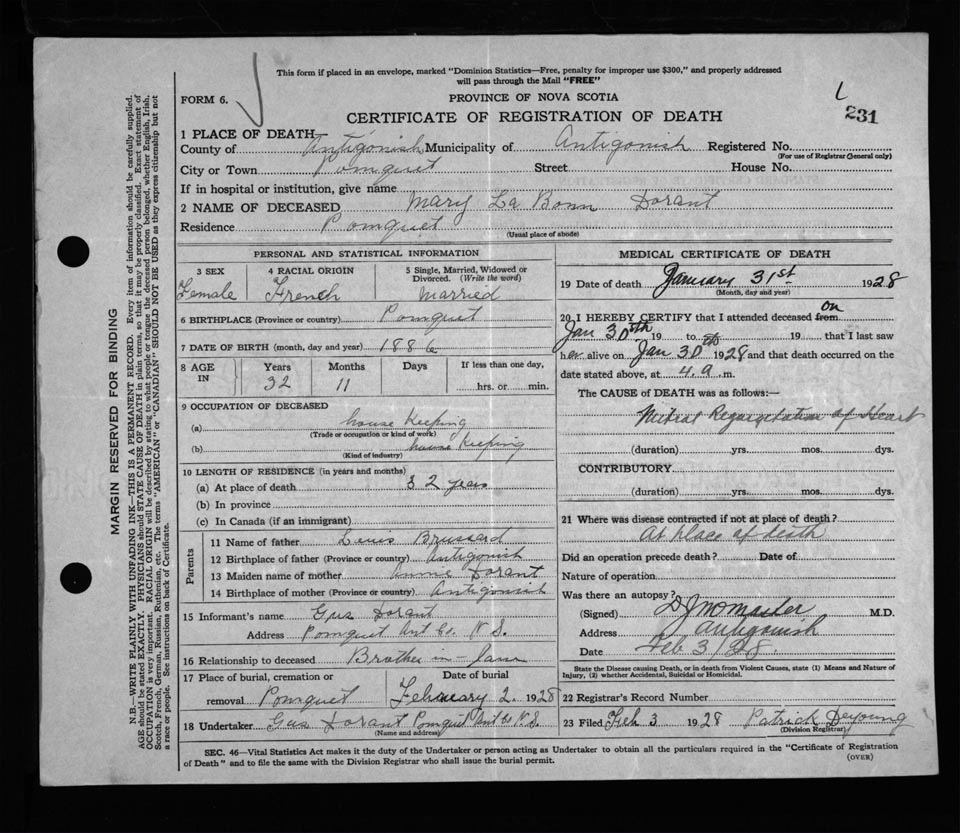 This form if placed in an envelope, marked "Dominion Statistics—Free, penalty for improper use $300," and properly addressed
will pass through the Mail "FREE"
FORM 6.
PROVINCE OF NOVA SCOTIA
L
231
CERTIFICATE OF REGISTRATION OF DEATH
1 PLACE OF DEATH—
County of Antigonish Municipality of Antigonish Registered No.
(For use of Registrar General only)
City or Town Pomquet Street House No.
If in hospital or institution, give name
2 NAME OF DECEASED Mary La Bonn Dorant
Residence Pomquet
(Usual place of abode)
PERSONAL AND STATISTICAL INFORMATION
3 SEX 4 RACIAL ORIGIN 5 Single, Married, Widowed or
Divorced. (Write the word)
Female French Married
6 BIRTHPLACE (Province or country) Pomquet
7 DATE OF BIRTH (month, day and year) 1886
8 AGE IN Years Months Days If less than one day,
32 11 hrs. or min.
9 OCCUPATION OF DECEASED
(a) house Keeping
(Trade or occupation or kind of work)
(b) house Keeping
(Kind of industry)
10 LENGTH OF RESIDENCE (in years and months)
(a) At place of death 32 years
(b) In province
(c) In Canada (if an immigrant)
Parents
11 Name of father Luis Brussard
12 Birthplace of father (Province or country) Antigonish
13 Maiden name of mother Anne Dorant
14 Birthplace of mother (Province or country) Antigonish
15 Informant's name Gus Dorant
Address Pomquet Ant Co. N S.
16 Relationship to deceased Brother in-law
17 Place of burial, cremation or Date of burial
removal Pomquet February 2. 1928
18 Undertaker Gus Dorant Pomquet Ant Co N S.
(Name and address)
MEDICAL CERTIFICATE OF DEATH
19 Date of death January 31st 1928
(Month, day and year)
20 I HEREBY CERTIFY that I attended deceased from on
Jan 30th 19 to 19 that I last saw
her alive on Jan 30 1928 and that death occurred on the
date stated above, at 4.a.m.
The CAUSE OF DEATH was as follows:—
Mitral Regurgitation of Heart
(duration) yrs. mos. dys.
CONTRIBUTORY
(duration) yrs. mos. dys.
21 Where was disease contracted if not at place of death?
At place of death
Did an operation precede death? Date of
Nature of operation
Was there an autopsy?
(Signed) M.D.
Address Antigonish
Date Feb 3/28.
State the Disease causing Death, or in death from Violent Causes, state (1) Means and Nature of
Injury, (2) whether Accidental, Suicidal or Homicidal.
22 Registrar's Record Number
23 Filed Feb 3 1928 Patrick Deyoung
(Division Registrar)
SEC. 46—Vital Statistics Act makes it the duty of the Undertaker or person acting as Undertaker to obtain all the particulars required in the "Certificate of Registration
of Death" and to file the same with the Division Registrar who shall issue the burial permit.
(OVER)
MARGIN RESERVED FOR BINDING
N.B.—WRITE PLAINLY, WITH UNFADING INK—THIS IS A PERMANENT RECORD. Every item of information should be carefully supplied.
AGE should be stated EXACTLY. PHYSICIANS should STATE CAUSE OF DEATH in plain terms, so that it may be properly classified. Exact statement of
OCCUPATION is very important. RACIAL ORIGIN will be described by stating to what people or tongue the deceased person belonged, whether English, Irish,
Scotch, French, German, Russian, Ruthenian, etc. The terms "AMERICAN" or "CANADIAN" SHOULD NOT BE USED as they express citizenship but not
a race or people. See instructions on back of Certificate.